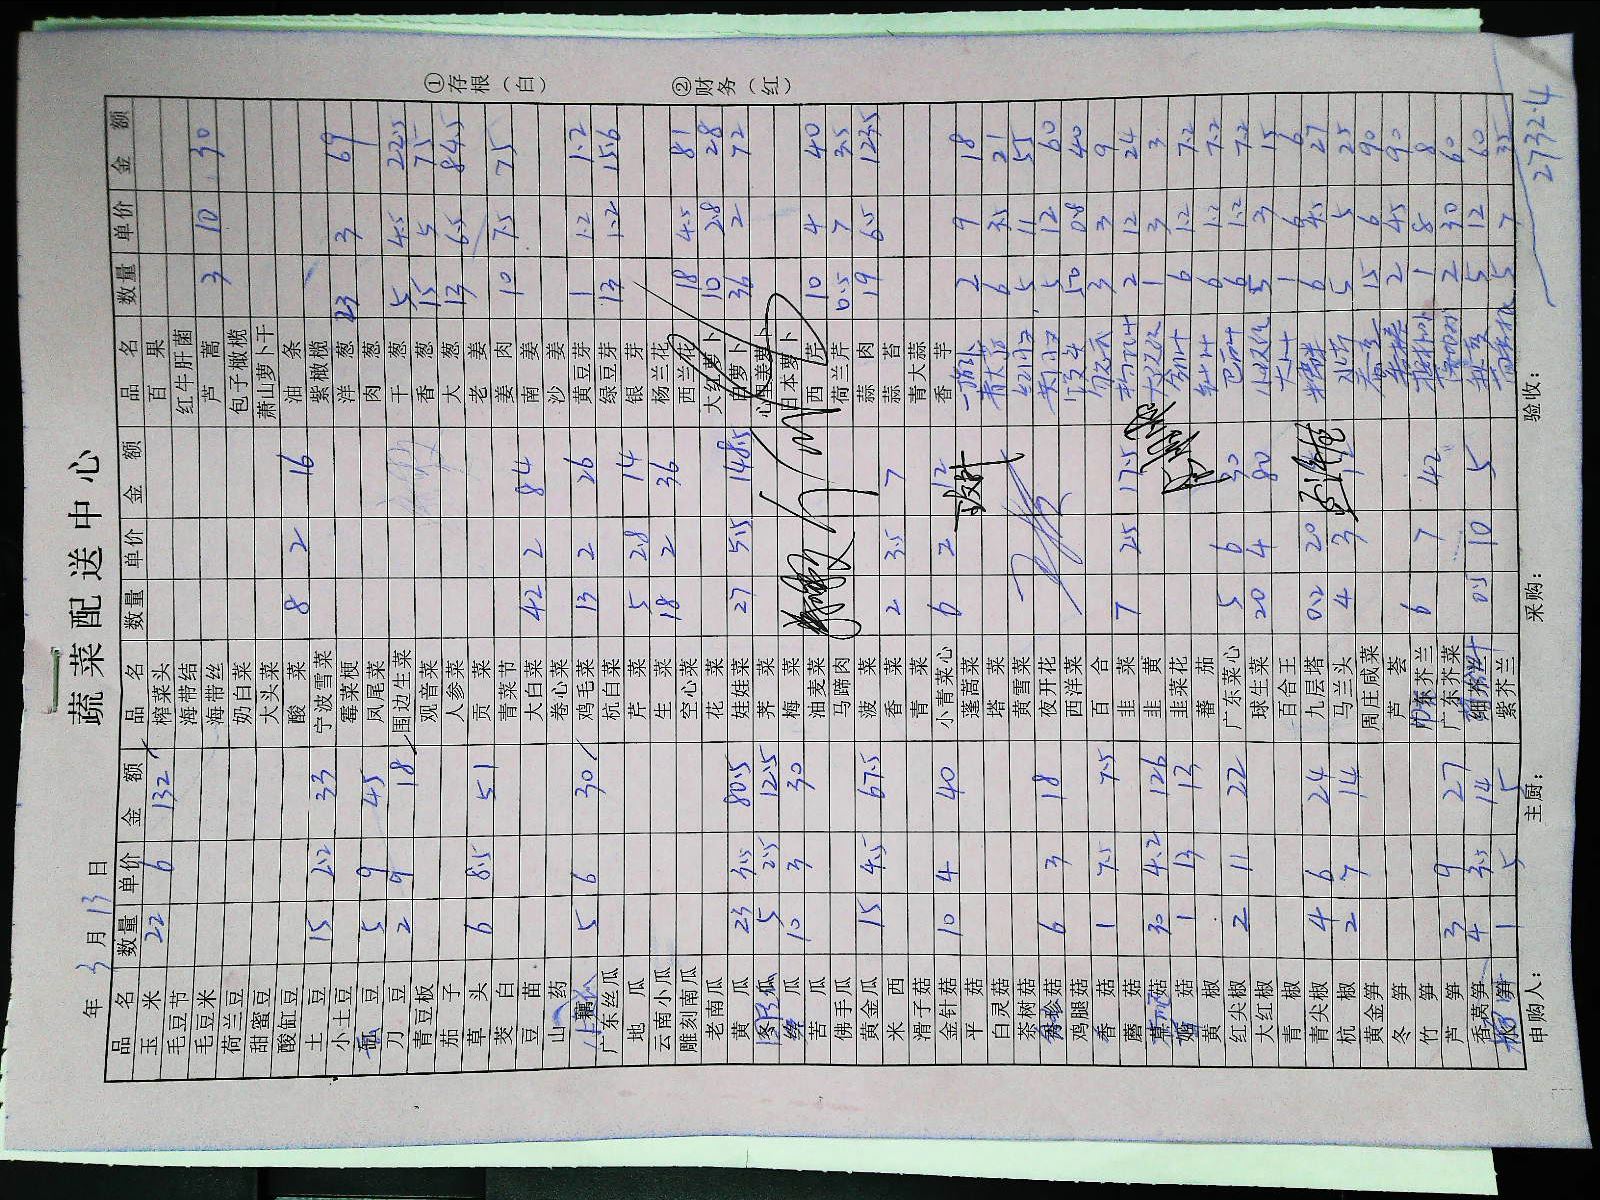 蔬菜配送中心
年 3 月 13 日
品名 数量 单价 金额 品名 数量 单价 金额 品名 数量 单价 金额
玉米 22 6 132 榨菜头 百果
毛豆节 海带结 红牛肝菌
毛豆米 海带丝 芦蒿 3 10 30
荷兰豆 奶白菜 包子橄榄
甜蜜豆 大头菜 萧山萝卜干
酸缸豆 酸菜 8 2 16 油条
土豆 15 2.2 33 宁波雪菜 紫橄榄
小土豆 霉菜梗 洋葱 23 3 69
豆 5 9 45 凤尾菜 肉葱
刀豆 2 9 18 围边生菜 干葱 5 4.5 22.5
青豆板 观音菜 香葱 15 5 75
茄子 人参菜 大葱 13 6.5 84.5
草头 6 8.5 51 贡菜 老姜
茭白 青菜节 姜肉 10 7.5 75
豆苗 大白菜 42 2 84 南姜
山药 卷心菜 沙姜
藕 5 6 30 鸡毛菜 13 2 26 黄豆芽 1 1.2 1.2
广东丝瓜 杭白菜 绿豆芽 13 1.2 15.6
地瓜 芹菜 5 2.8 14 银芽
云南小瓜 生菜 18 2 36 杨兰花
雕刻南瓜 空心菜 西兰花 18 4.5 81
老南瓜 花菜 大红萝卜 10 2.8 28
黄瓜 23 3.5 80.5 娃娃菜 27 5.5 148.5 白萝卜 36 2 72
瓜 5 2.5 12.5 荠菜 心里美萝卜
瓜 10 3 30 梅菜 日本萝卜
苦瓜 油麦菜 西芹 10 4 40
佛手瓜 马蹄肉 荷兰芹 0.5 7 3.5
黄金瓜 15 4.5 67.5 菠菜 蒜肉 19 6.5 123.5
米西 香菜 2 3.5 7 蒜苔
滑子菇 青菜 青大蒜
金针菇 10 4 40 小青菜心 6 2 12 香芋
平菇 蓬蒿菜 2 9 18
白灵菇 塔菜 青大蒜 6 3.5 21
茶树菇 黄雪菜 5 11 55
珍菇 6 3 18 夜开花 5 12 60
鸡腿菇 西洋菜 50 0.8 40
香菇 1 7.5 7.5 百合 3 3 9
蘑菇 韭菜 7 2.5 17.5 2 12 24
菇 30 4.2 126 韭黄 1 3 3
菇 1 13 13 韭菜花 6 1.2 7.2
黄椒 蕃茄 6 1.2 7.2
红尖椒 2 11 22 广东菜心 5 6 30 6 1.2 7.2
大红椒 球生菜 20 4 80 5 3 15
青椒 百合王 1 6 6
青尖椒 4 6 24 九层塔 0.2 20 6 4.5 27
杭椒 2 7 14 马兰头 4 3 5 5 25
黄金笋 周庄咸菜 15 6 90
冬笋 芦荟 2 45 90
竹笋 芥兰 6 7 42 1 8 8
芦笋 3 9 27 广东芥菜 2 30 60
香莴笋 4 3.5 14 0.5 10 5 5 12 60
笋 1 5 5 紫芥兰 5 7 35
申购人： 主厨： 采购： 验收： 2732.4
①存根（白）
②财务（红）